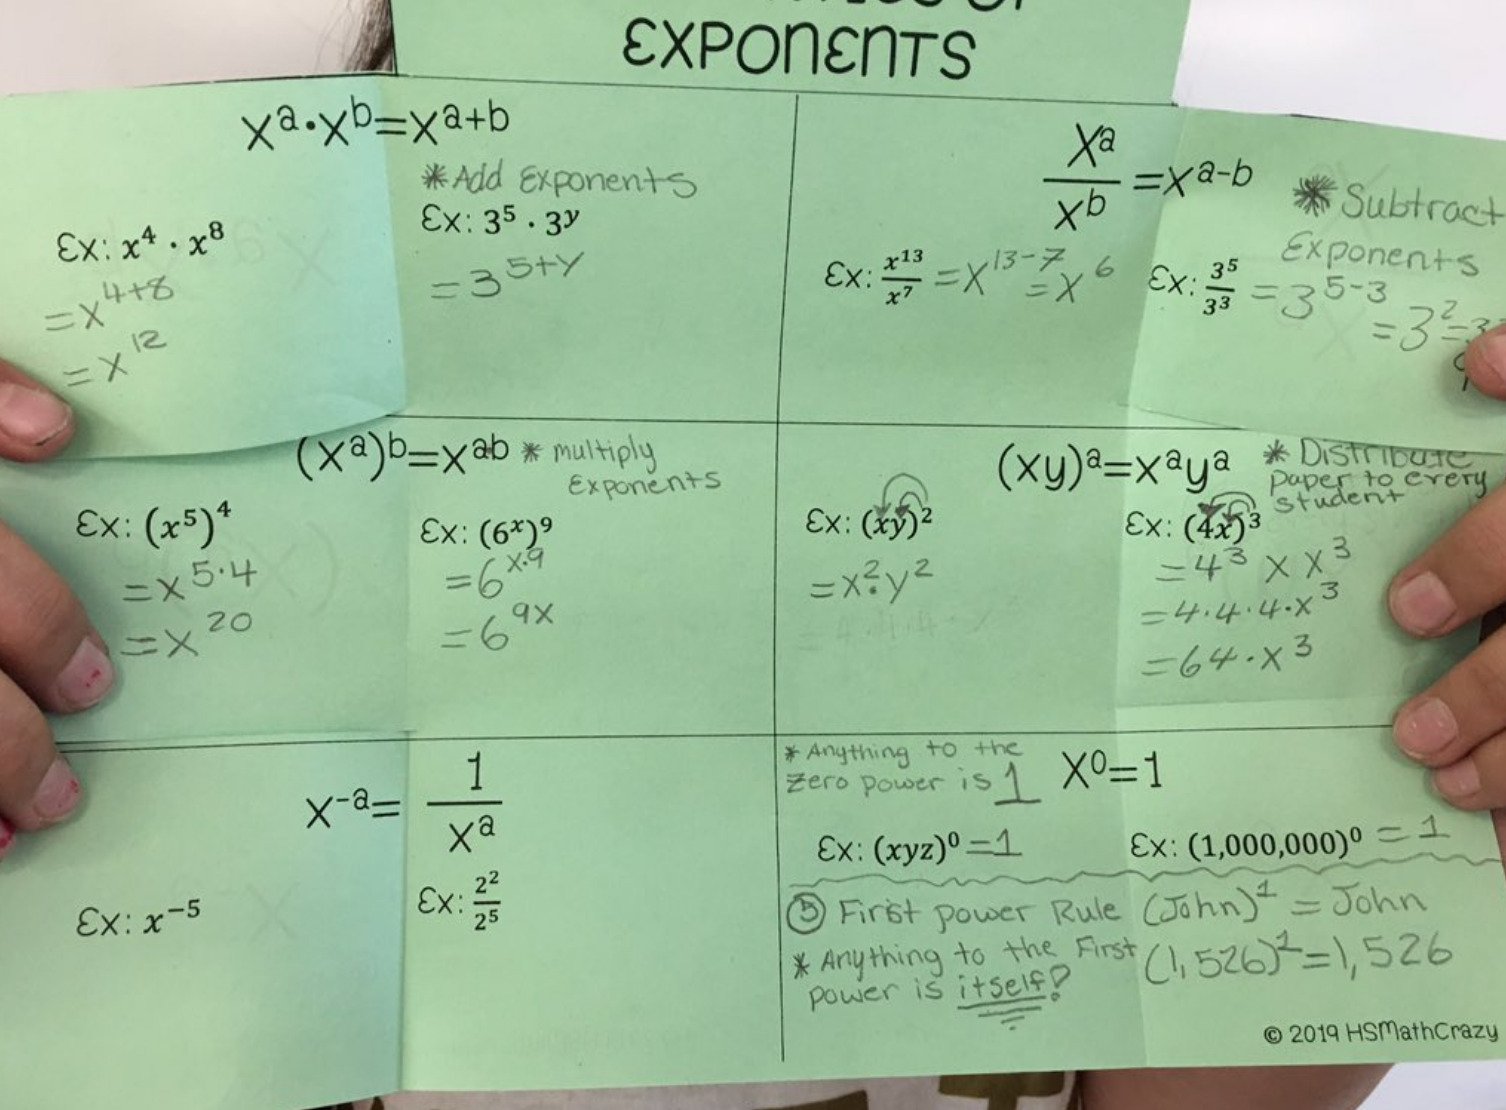 EXPONENTS
xᵃ·xᵇ=xᵃ⁺ᵇ
*Add Exponents
Ex: x⁴ · x⁸
=x⁴⁺⁸
=x¹²
Ex: 3⁵ · 3ʸ
=3⁵⁺ʸ
xᵃ/xᵇ=xᵃ⁻ᵇ
*Subtract
Exponents
Ex: x¹³/x⁷ =x¹³⁻⁷ =x⁶
Ex: 3⁵/3³ =3⁵⁻³
=3²=
(xᵃ)ᵇ=xᵃᵇ * multiply
Exponents
Ex: (x⁵)⁴
=x⁵·⁴
=x²⁰
Ex: (6ˣ)⁹
=6ˣ·⁹
=6⁹ˣ
(xy)ᵃ=xᵃyᵃ * Distribute
paper to every
student
Ex: (xy)²
=x²·y²
Ex: (4x)³
=4³ x x³
=4·4·4·x³
=64·x³
x⁻ᵃ= 1/xᵃ
Ex: x⁻⁵
Ex: 2²/2⁵
* Anything to the
zero power is 1
x⁰=1
Ex: (xyz)⁰ =1
Ex: (1,000,000)⁰ = 1
First power Rule (John)¹ = John
* Anything to the First
power is itself!
(1,526)¹=1,526
© 2019 HSMathCrazy